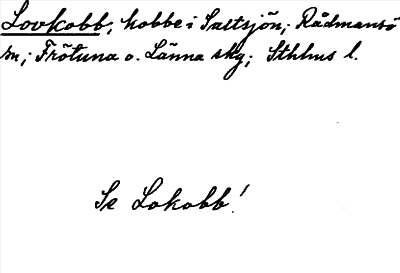 Lovkobb, kobbe i Saltsjön; Rådmansö
sn; Frötuna o. Länna skg; Sthlms l.
Se Lokobb!